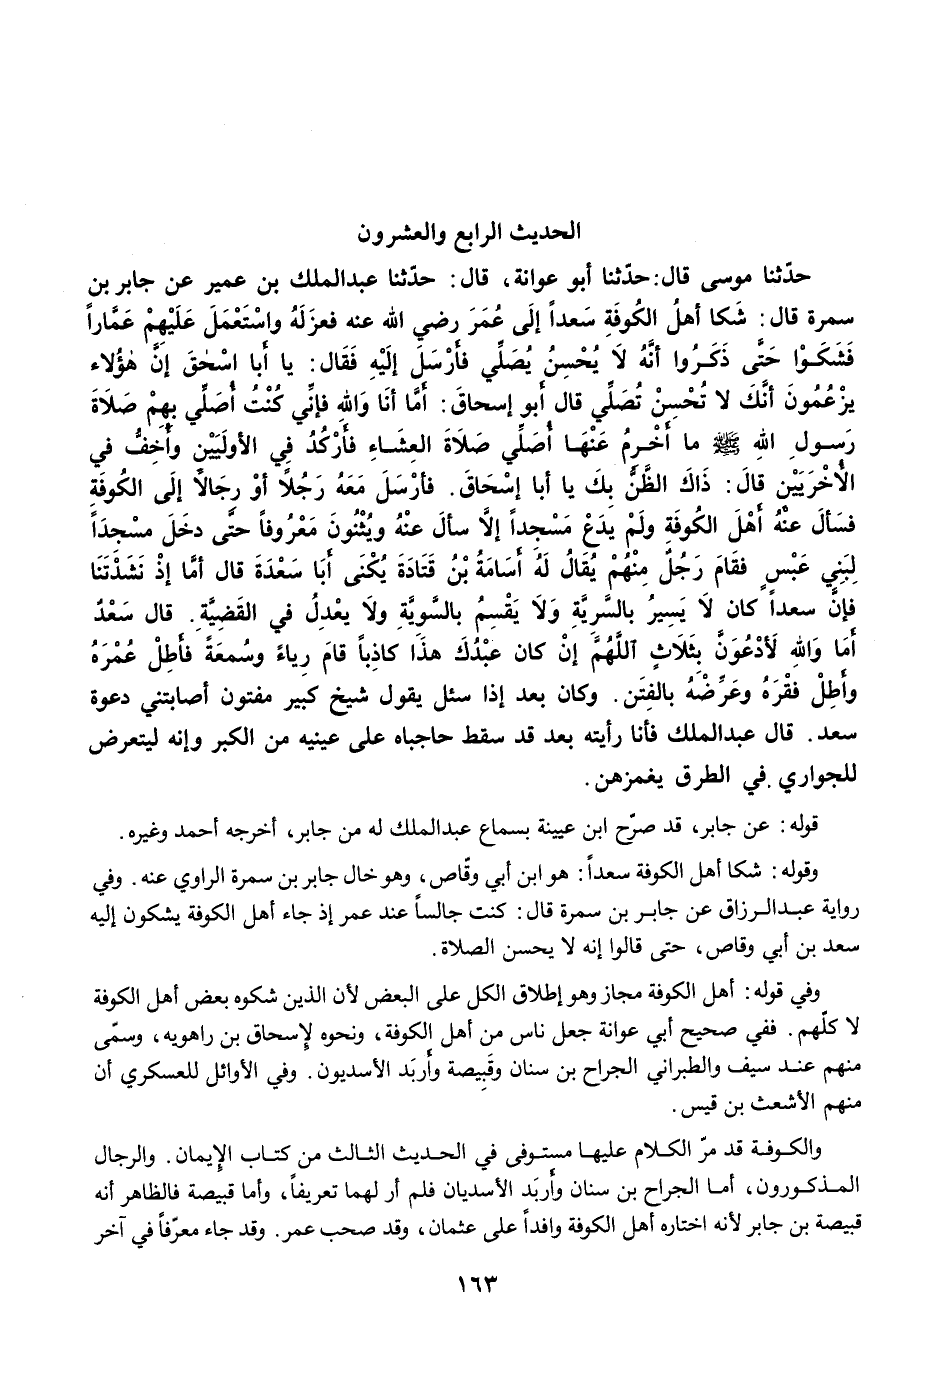 الحديث الرابع والعشرون
حدّثنا موسى قال: حدّثنا أبو عوانة، قال: حدّثنا عبدالملك بن عمير عن جابر بن
سمرة قال: شَكا أهلُ الكُوفَةِ سَعداً إلَى عُمَرَ رضي الله عنه فعزَلَهُ واسْتَعْمَلَ عَلَيْهِمْ عَمَّاراً
فَشَكَوْا حَتَّى ذَكَرُوا أنَّهُ لَا يُحْسِنُ يُصَلِّي فَأرْسَلَ إلَيْهِ فَقَال: يا أبا اسْحٰقَ إنَّ هٰؤُلاء
يزْعُمُونَ أنَّكَ لا تُحْسِنْ تُصَلِّي قال أبو إسحاقَ: أمَّا أنَا وَاللهِ فإنِّي كُنْتُ أُصَلِّي بِهِمْ صَلَاةَ
رَسولِ اللهِ ﷺ ما أخْرِمُ عَنْهَا أُصَلِّي صَلَاةَ العِشَاءِ فَأَرْكُدُ فِي الأولَيَيْنِ وأُخِفُّ في
الأُخْرَيَيْنِ قالَ: ذَاكَ الظَّنُّ بِكَ يا أبا إسْحَاقَ. فأرْسَلَ مَعَهُ رَجُلًا أوْ رِجالًا إلَى الكُوفَةِ
فسَألَ عنْهُ أَهْلَ الكُوفَةِ ولَمْ يدَعْ مَسْجداً إلَّا سألَ عنْهُ ويُثْنُونَ مَعْرُوفاً حتَّى دخَلَ مسْجِداً
لِبَنِي عَبْسٍ فقَامَ رَجُلٌ مِنْهُمْ يُقَالُ لَهُ أُسَامَةُ بْنُ قَتَادَةَ يُكْنَى أبَا سَعْدَةَ قال أمَّا إذْ نَشَدْتَنَا
فإنَّ سعداً كان لَا يَسِيرُ بالسَّرِيَّةِ وَلَا يَقْسِمُ بالسَّوِيَّةِ ولَا يعْدِلُ في القَضِيَّةِ. قال سَعْدٌ
أمَا وَاللهِ لَأدْعُوَنَّ بِثَلاثٍ اَللَّهُمَّ إنْ كان عبْدُكَ هذَا كاذِباً قامَ رِياءً وسُمعَةً فأطِلْ عُمْرَهُ
وأطِلْ فقْرَهُ وعَرِّضْهُ بالفِتَنِ. وكان بعد إذا سئل يقول شيخ كبير مفتون أصابتني دعوة
سعد. قال عبدالملك فأنا رأيته بعد قد سقط حاجباه على عينيه من الكبر وإنه ليتعرض
للجواري في الطرق يغمزهن.
قوله: عن جابر، قد صرّح ابن عيينة بسماع عبدالملك له من جابر، أخرجه أحمد وغيره.
وقوله: شكا أهل الكوفة سعداً: هو ابن أبي وقّاص، وهو خال جابر بن سمرة الراوي عنه. وفي
رواية عبدالرزاق عن جابر بن سمرة قال: كنت جالساً عند عمر إذ جاء أهل الكوفة يشكون إليه
سعد بن أبي وقاص، حتى قالوا إنه لا يحسن الصلاة.
وفي قوله: أهل الكوفة مجاز وهو إطلاق الكل على البعض لأن الذين شكوه بعض أهل الكوفة
لا كلّهم. ففي صحيح أبي عوانة جعل ناس من أهل الكوفة، ونحوه لإسحاق بن راهويه، وسمّى
منهم عند سيف والطبراني الجراح بن سنان وقَبِيصة وأَربَد الأسديون. وفي الأوائل للعسكري أن
منهم الأشعث بن قيس.
والكوفة قد مرّ الكلام عليها مستوفى في الحديث الثالث من كتاب الإيمان. والرجال
المذكورون، أما الجراح بن سنان وأَربَد الأسديان فلم أر لهما تعريفاً، وأما قبيصة فالظاهر أنه
قبيصة بن جابر لأنه اختاره أهل الكوفة وافداً على عثمان، وقد صحب عمر. وقد جاء معرّفاً في آخر
١٦٣